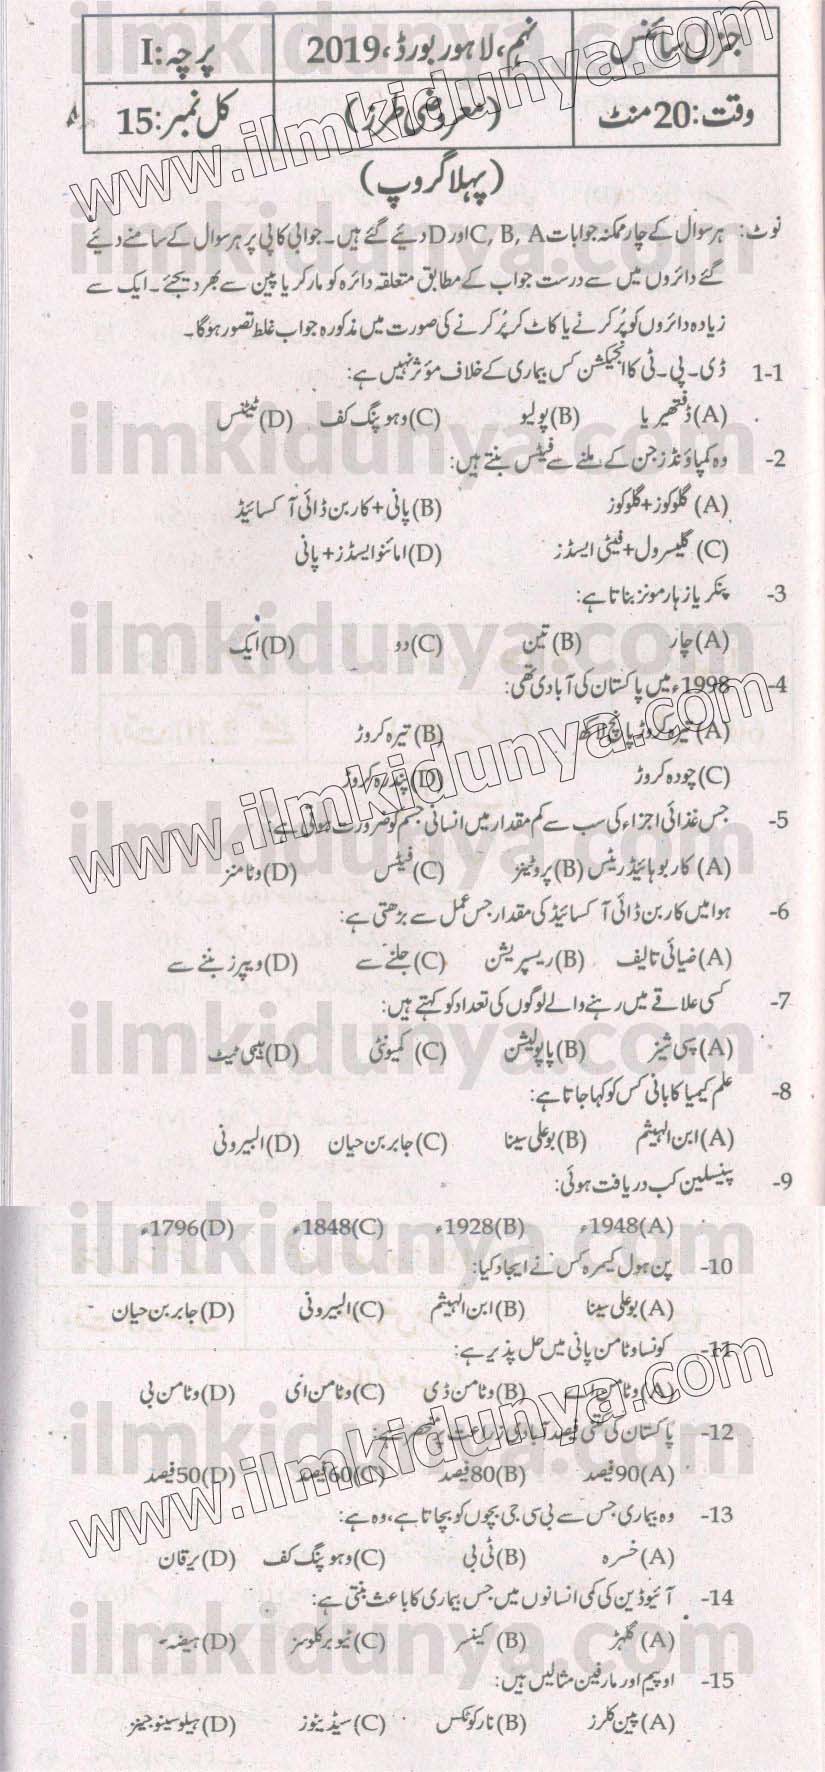 جنرل سائنس
نہم، لاہور بورڈ، 2019
پرچہ: I
وقت: 20 منٹ
(معروضی طرز)
کل نمبر: 15
(پہلا گروپ)
نوٹ: ہر سوال کے چار ممکنہ جوابات C, B, A اور D دیئے گئے ہیں۔ جوابی کاپی پر ہر سوال کے سامنے دیئے
گئے دائروں میں سے درست جواب کے مطابق متعلقہ دائرہ کو مارکر یا پین سے بھر دیجئے۔ ایک سے
زیادہ دائروں کو پُر کرنے یا کاٹ کر پُر کرنے کی صورت میں مذکورہ جواب غلط تصور ہوگا۔
1-1 ڈی۔پی۔ٹی کا انجیکشن کس بیماری کے خلاف مؤثر نہیں ہے:
(A) ڈفتھیریا (B) پولیو (C) وہوپنگ کف (D) ٹیٹنس
2- وہ کمپاؤنڈز جن کے ملنے سے فیٹس بنتے ہیں:
(A) گلوکوز+گلوکوز (B) پانی+کاربن ڈائی آکسائیڈ
(C) گلیسرول+فیٹی ایسڈز (D) امائنو ایسڈز+پانی
3- پنکریاز ہارمونز بناتا ہے:
(A) چار (B) تین (C) دو (D) ایک
4- 1998ء میں پاکستان کی آبادی تھی:
(A) تیرہ کروڑ پانچ لاکھ (B) تیرہ کروڑ
(C) چودہ کروڑ (D) پندرہ کروڑ
5- جس غذائی اجزاء کی سب سے کم مقدار میں انسانی جسم کو ضرورت ہوتی ہے:
(A) کاربوہائیڈریٹس (B) پروٹینز (C) فیٹس (D) وٹامنز
6- ہوا میں کاربن ڈائی آکسائیڈ کی مقدار جس عمل سے بڑھتی ہے:
(A) ضیائی تالیف (B) ریسپریشن (C) جلنے سے (D) ویپرز بننے سے
7- کسی علاقے میں رہنے والے لوگوں کی تعداد کو کہتے ہیں:
(A) سپی شیز (B) پاپولیشن (C) کمیونٹی (D) ہیبی ٹیٹ
8- علم کیمیا کا بانی کس کو کہا جاتا ہے:
(A) ابن الہیثم (B) بوعلی سینا (C) جابر بن حیان (D) البیرونی
9- پینسلین کب دریافت ہوئی:
(A) 1948ء (B) 1928ء (C) 1848ء (D) 1796ء
10- پن ہول کیمرہ کس نے ایجاد کیا:
(A) بوعلی سینا (B) ابن الہیثم (C) البیرونی (D) جابر بن حیان
11- کونسا وٹامن پانی میں حل پذیر ہے:
(A) وٹامن اے (B) وٹامن ڈی (C) وٹامن ای (D) وٹامن بی
12- پاکستان کی کتنی فیصد آبادی زراعت پر منحصر ہے:
(A) 90 فیصد (B) 80 فیصد (C) 60 فیصد (D) 50 فیصد
13- وہ بیماری جس سے بی سی جی بچوں کو بچاتا ہے، وہ ہے:
(A) خسرہ (B) ٹی بی (C) وہوپنگ کف (D) یرقان
14- آئیوڈین کی کمی انسانوں میں جس بیماری کا باعث بنتی ہے:
(A) گلہڑ (B) کینسر (C) ٹیوبرکلوسز (D) ہیضہ۔
15- اوپیم اور مارفین مثالیں ہیں:
(A) پین کلرز (B) نارکوٹکس (C) سیڈیٹوز (D) ہیلوسینوجینز
ilmkidunya.com
www.ilmkidunya.com
ilmkidunya.com
ilmkidunya.com
www.ilmkidunya.com
ilmkidunya.com
ilmkidunya.com
ilmkidunya.com
www.ilmkidunya.com
ilmkidunya.com
ilmkidunya.com